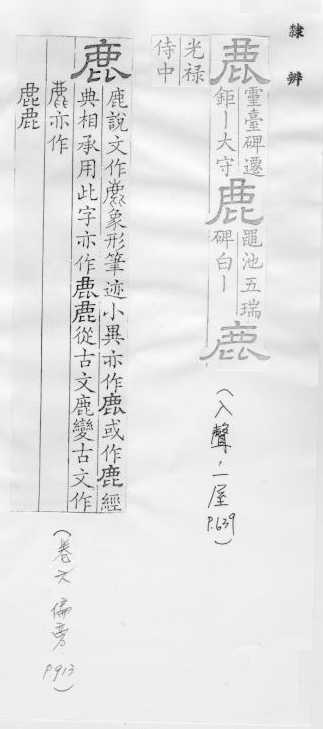 隸辨
鹿 靈臺碑遷
鉅｜大守
鹿 黽池五瑞
碑白｜
鹿
光禄
侍中
(入聲，一屋 P.639)
鹿 鹿說文作鹿象形筆迹小異亦作鹿或作鹿經
典相承用此字亦作鹿鹿從古文鹿變古文作
鹿亦作
鹿鹿
(卷六 偏旁 P.913)